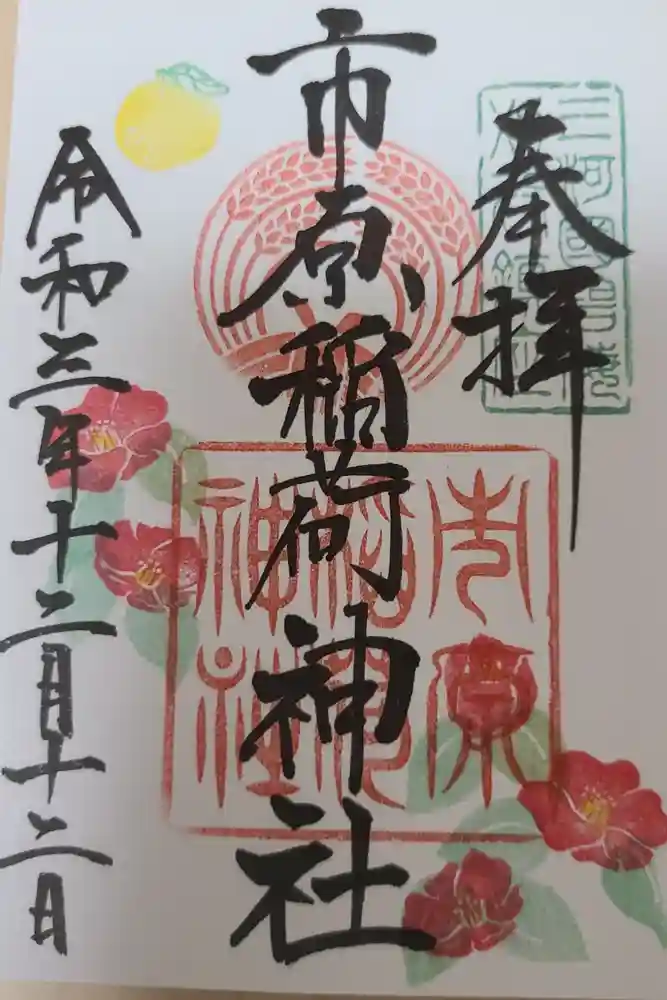 奉拝
市原稲荷神社
令和三年十二月十二日
市原
稲荷
神社